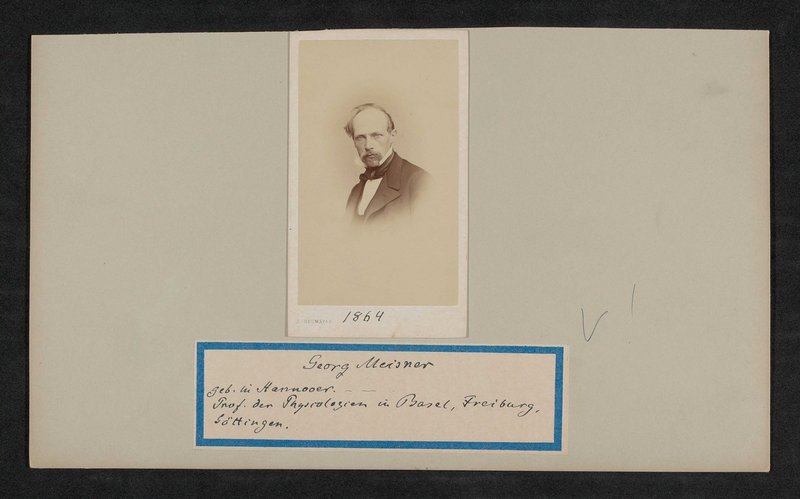 1864
V!
Georg Meisner
geb. in Hannover. — —
Prof. der Physiologien in Basel, Freiburg,
Göttingen.